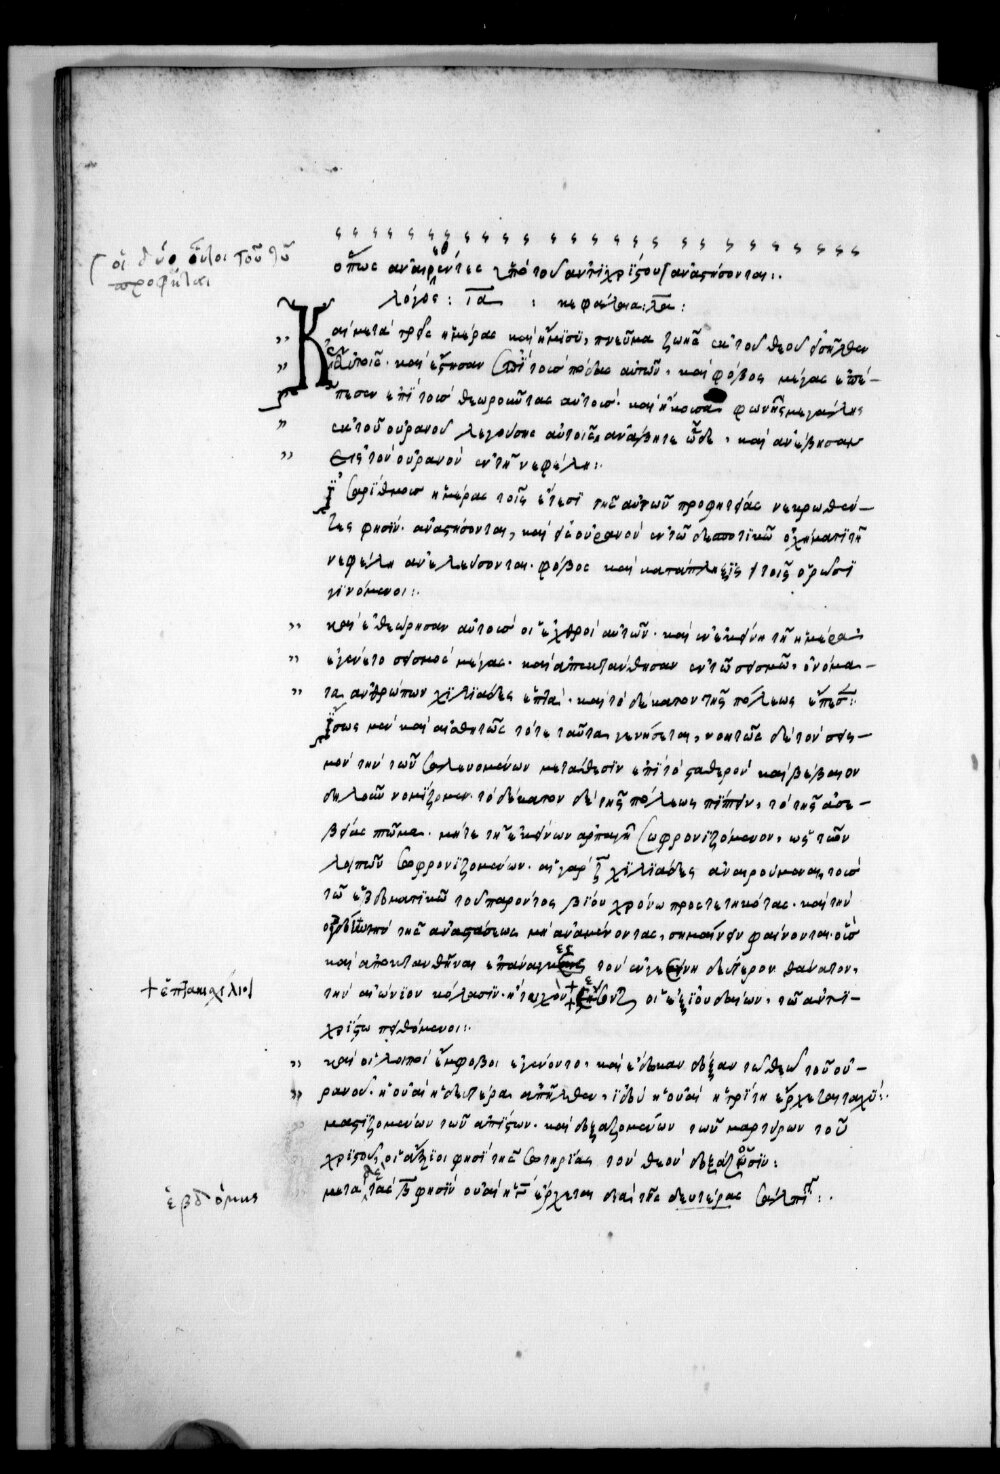 οἱ δύο οὗτοι τοῦ θῦ
προφῆται
ὅπως ἀναιρεθέντες ὑπὸ τοῦ ἀντιχρίστου ἀναστήσονται:.
λόγος: ια : κεφάλαια: λα:
Καὶ μετὰ τρεῖς ἡμέρας καὶ ἥμισυ, πνεῦμα ζωῆς ἐκ τοῦ θεοῦ εἰσῆλθεν
ἐν αὐτοῖς. καὶ ἔστησαν ἐπὶ τοὺς πόδας αὐτῶν. καὶ φόβος μέγας ἐπέ-
πεσεν ἐπὶ τοὺς θεωροῦντας αὐτούς. καὶ ἤκουσαν φωνῆς μεγάλης
ἐκ τοῦ οὐρανοῦ λεγούσης αὐτοῖς, ἀνάβητε ὧδε. καὶ ἀνέβησαν
εἰς τὸν οὐρανὸν ἐν τῇ νεφέλῃ:.
Ἰσαρίθμους ἡμέρας τοῖς ἔτεσι τῆς αὐτῶν προφητείας νεκρωθέν-
τες φησὶν. ἀναστήσονται, καὶ εἰς οὐρανὸν ἐν τῷ δεσποτικῷ ὀχήματι τῇ
νεφέλῃ ἀνελεύσονται. φόβος καὶ κατάπληξις τοῖς ὁρῶσι
γινόμενοι:.
καὶ ἐθεώρησαν αὐτοὺς οἱ ἐχθροὶ αὐτῶν. καὶ ἐν ἐκείνῃ τῇ ἡμέρᾳ
ἐγένετο σεισμὸς μέγας. καὶ ἀπεκτάνθησαν ἐν τῷ σεισμῷ, ὀνόμα-
τα ἀνθρώπων χιλιάδες ἑπτά. καὶ τὸ δέκατον τῆς πόλεως ἔπεσε:
Ἴσως μὲν καὶ αἰσθητῶς τότε ταῦτα γενήσεται, νοητῶς δὲ τὸν σεισ-
μὸν τὴν τῶν σαλευομένων μετάθεσιν ἐπὶ τὸ σταθερὸν καὶ βέβαιον
δηλοῦν νομίζομεν. τὸ δέκατον δὲ τῆς πόλεως πίπτειν, τὸ τῆς ἀσε-
βείας πτῶμα. μήτε τῇ ἐκείνων ἁρπαγῇ σωφρονιζόμενον, ὡς τῶν
λοιπῶν σωφρονιζομένων. αἱ γὰρ ζ χιλιάδες ἀναιρούμεναι, τοὺς
τῷ ἑβδοματικῷ τοῦ παρόντος βίου χρόνῳ προστετηκότας. καὶ τὴν
τῆς ἀναστάσεως μὴ ἀναμένοντας, σημαίνειν φαίνονται. οὓς
καὶ ἀποκτανθῆναι τὸν ἐν γεέννῃ δεύτερον θάνατον,
τὴν αἰώνιον κόλασιν. ἢ τυχὸν οἱ ἐξ ἰουδαίων, τῷ ἀντι-
+ ἑπτακισχίλιοι
χρίστῳ πειθόμενοι:.
καὶ οἱ λοιποὶ ἔμφοβοι ἐγένοντο, καὶ ἔδωκαν δόξαν τῷ θεῷ τοῦ οὐ-
ρανοῦ. ἡ οὐαὶ ἡ δευτέρα ἀπῆλθεν, ἰδοὺ ἡ οὐαὶ ἡ τρίτη ἔρχεται ταχύ:.
μαστιζομένων τῶν ἀπίστων. καὶ δοξαζομένων τῶν μαρτύρων τοῦ
χριστοῦ, οἱ ἄξιοι φησὶ τῆς σωτηρίας τὸν θεὸν δοξάζουσιν:
μετὰ δὲ τὰς β φησὶν οὐαὶ ἡ γ ἔρχεται διὰ τῆς δευτέρας σάλπιγγος:.
ἑβδόμης